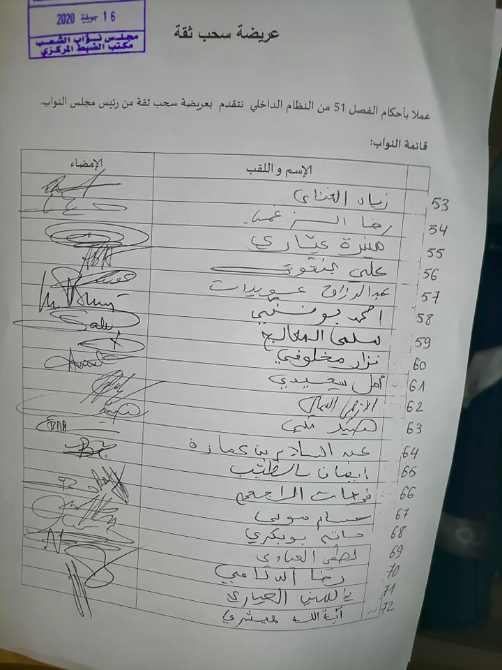 16 جويلية 2020
مجلس نواب الشعب
مكتب الضبط المركزي
عريضة سحب ثقة
عملا بأحكام الفصل 51 من النظام الداخلي نتقدم بعريضة سحب ثقة من رئيس مجلس النواب.
قائمة النواب:
الإسم و اللقب
الإمضاء
53 زياد
54 رضا الزغمي
55 منيرة عياري
56 علي
57 عبد الرزاق عويدات
58 أحمد بوغلبي
59 سلمى المعالج
60 نزار مخلوفي
61 أمل سعيدي
62
63 هيكل مكي
64 عبد السلام بن عمارة
65
66 فرحات الراجحي
67
68 حاتم بوبكري
69 لطفي العيادي
70 رضا الدلاعي
71 ياسين العياري
72 آية الله هيشري